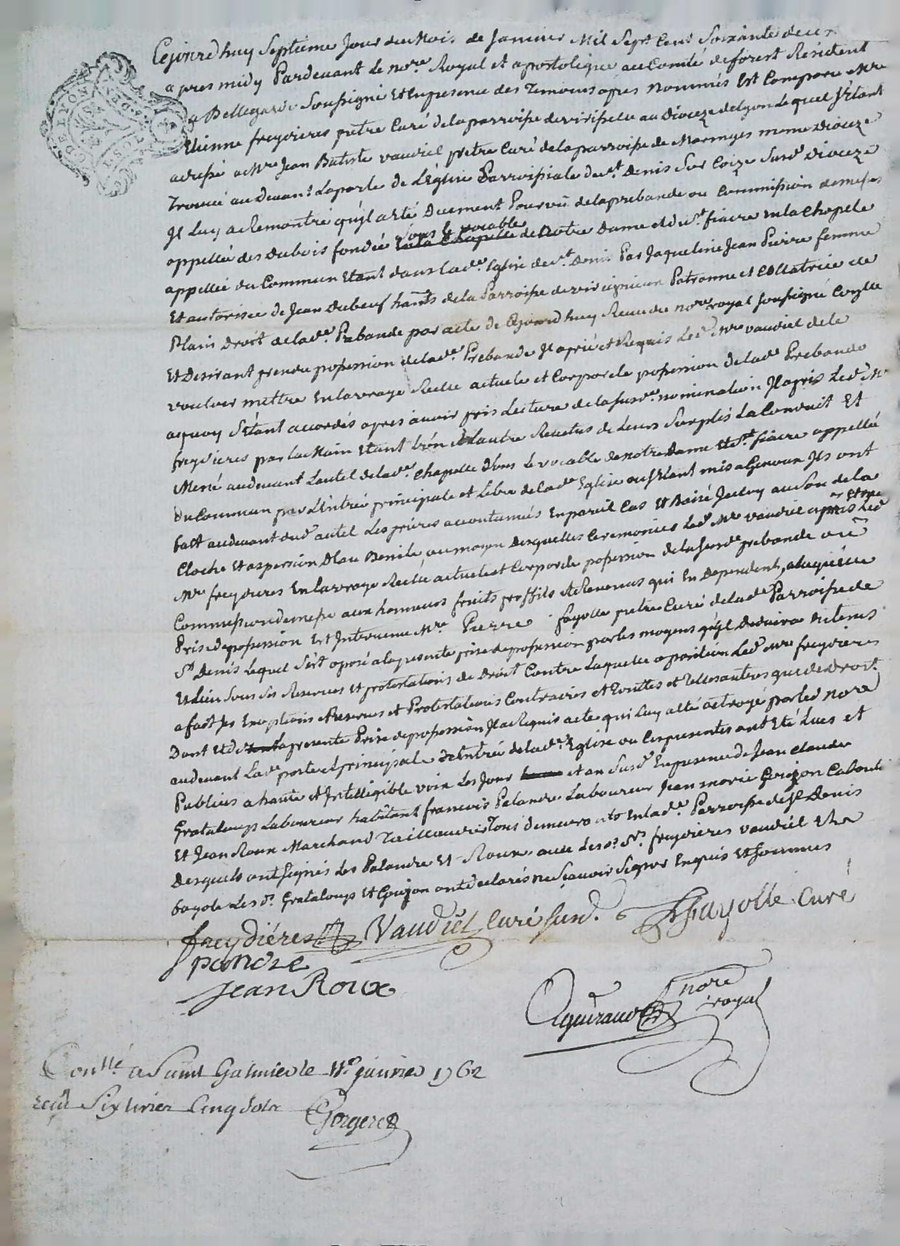 Cejourd huy Septieme Jour du Mois de Janvier Mil Sept Cens Soixante deux
apres midy Pardevant le nore. Royal et apostolique au Comté de forest Résident
a Bellegarde Soussigné Et en presence des Temoins apres nommés Est Comparu Mre
Etienne freydieres prêtre Curé de la parroisse de au Dioceze de Lyon Lequel S'étant
adressé a Mre. Jean Batiste vaudiel prêtre Curé de la parroisse de Maringes meme Dioceze
Trouvé au devant La porte de L'église Parroissiale de St. Denis Sur Coize Susd. Dioceze
Il Luy a Remontré qu'il a été Duement Pourvû de la prebande ou Commission de messes
appellée des Dubois fondée Sous le vocable de Notre Dame et de St. fiacre en la Chapele
appellée du Commun Etant dans lade. Eglise de St. Denis Par Jaqueline Jean Pierre femme
Et autorisée de Jean Dubeuf habts. de la Parroisse de Patronne et Collatrice de
Plain Droit de lade. Prebande par acte de Cejourd huy Receu du nore royal soussigné
Et Desirant prendre possession de lade. Prebande Il a prié et Requis Led. Mre vaudiel de le
vouloir mettre En la vraye Reelle actuele et Corporele possession de lade Prebande
aquoy S'étant accordés apres avoir pris Lecture de la susde. nomination Il a pris Led. Mre
freydieres par la Main Etant L'un et L'autre Revetus de Leurs Surplis La Conduit Et
Mené au devant L'autel de lade. Chapelle Sous le vocable de notre dame et St. fiacre appellée
du Commun par L'entrée principale et Libre de lade Eglise ou S'étant mis a Genoux Ils ont
fait au devant dud. autel Les prieres accoutumées En pareil Cas Et Baisé Iceluy au Son de la
Cloche Et aspersion D'Eau Benite au moyen Desquelles Ceremonies Led. Mre vaudiel a mis Led
Mre freydieres En la vraye Reelle actuele et Corporele possession de la susde prebande ou
Commission de messe aux honneurs fruits proffits et Revenus qui En Dependent, a laquéle
Prise de possession Est Intervenu Mre. Pierre fayolle prêtre Curé de lade Parroisse de
St. Denis Lequel S'est oposé a la presente prise de possession par les moyens qu'il Deduira En tems
Et Lieu Sous Ses Reserves et protestations de Droit Contre Laquelle oposition Led. Mre freydieres
a fait Ses Exceptions Reserves et Protestations Contraires et Toutes et Telles autres que de Droit
Dont Et de la presente Prise de possession Il a Requis acte qui Luy a été octroyé par led nore
au devant Lade. porte et principale d'entrée de lade. Eglise ou Ces presentes ont Eté Lues et
Publiées a haute et Intelligible voix Les Jour et an Susd. En presence de Jean Claude
Grataloup Laboureur habitant francois Palandre Laboureur Jean marie Goujon
Et Jean Roux Marchand Tous demeurants en lade. Parroisse de St. Denis
Desquels ont Signés Les Palandre Et Roux avec lesd. Srs. freydieres vaudiel Et
fayole Les Srs. Grataloup Et Goujon ont declarés ne sçavoir Signer Enquis Et Sommés
freydiéres Vaudiel Curé Susd. Fayolle Curé
Jean Roux
nore royal
Conlé a Saint Galmier le 11e janvier 1762
reçu Six livres Cinq sols